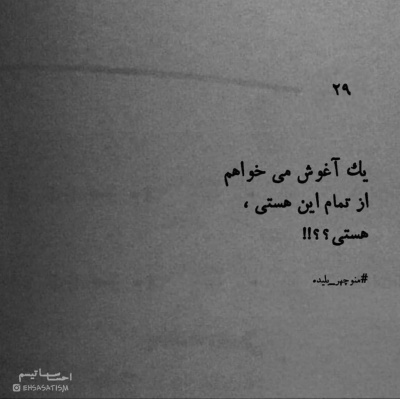 ۲۹
یك آغوش می خواهم
از تمام این هستی ،
هستی؟؟!!
#منوچهر_پلیده.
احساساتیسم
EHSASATISM